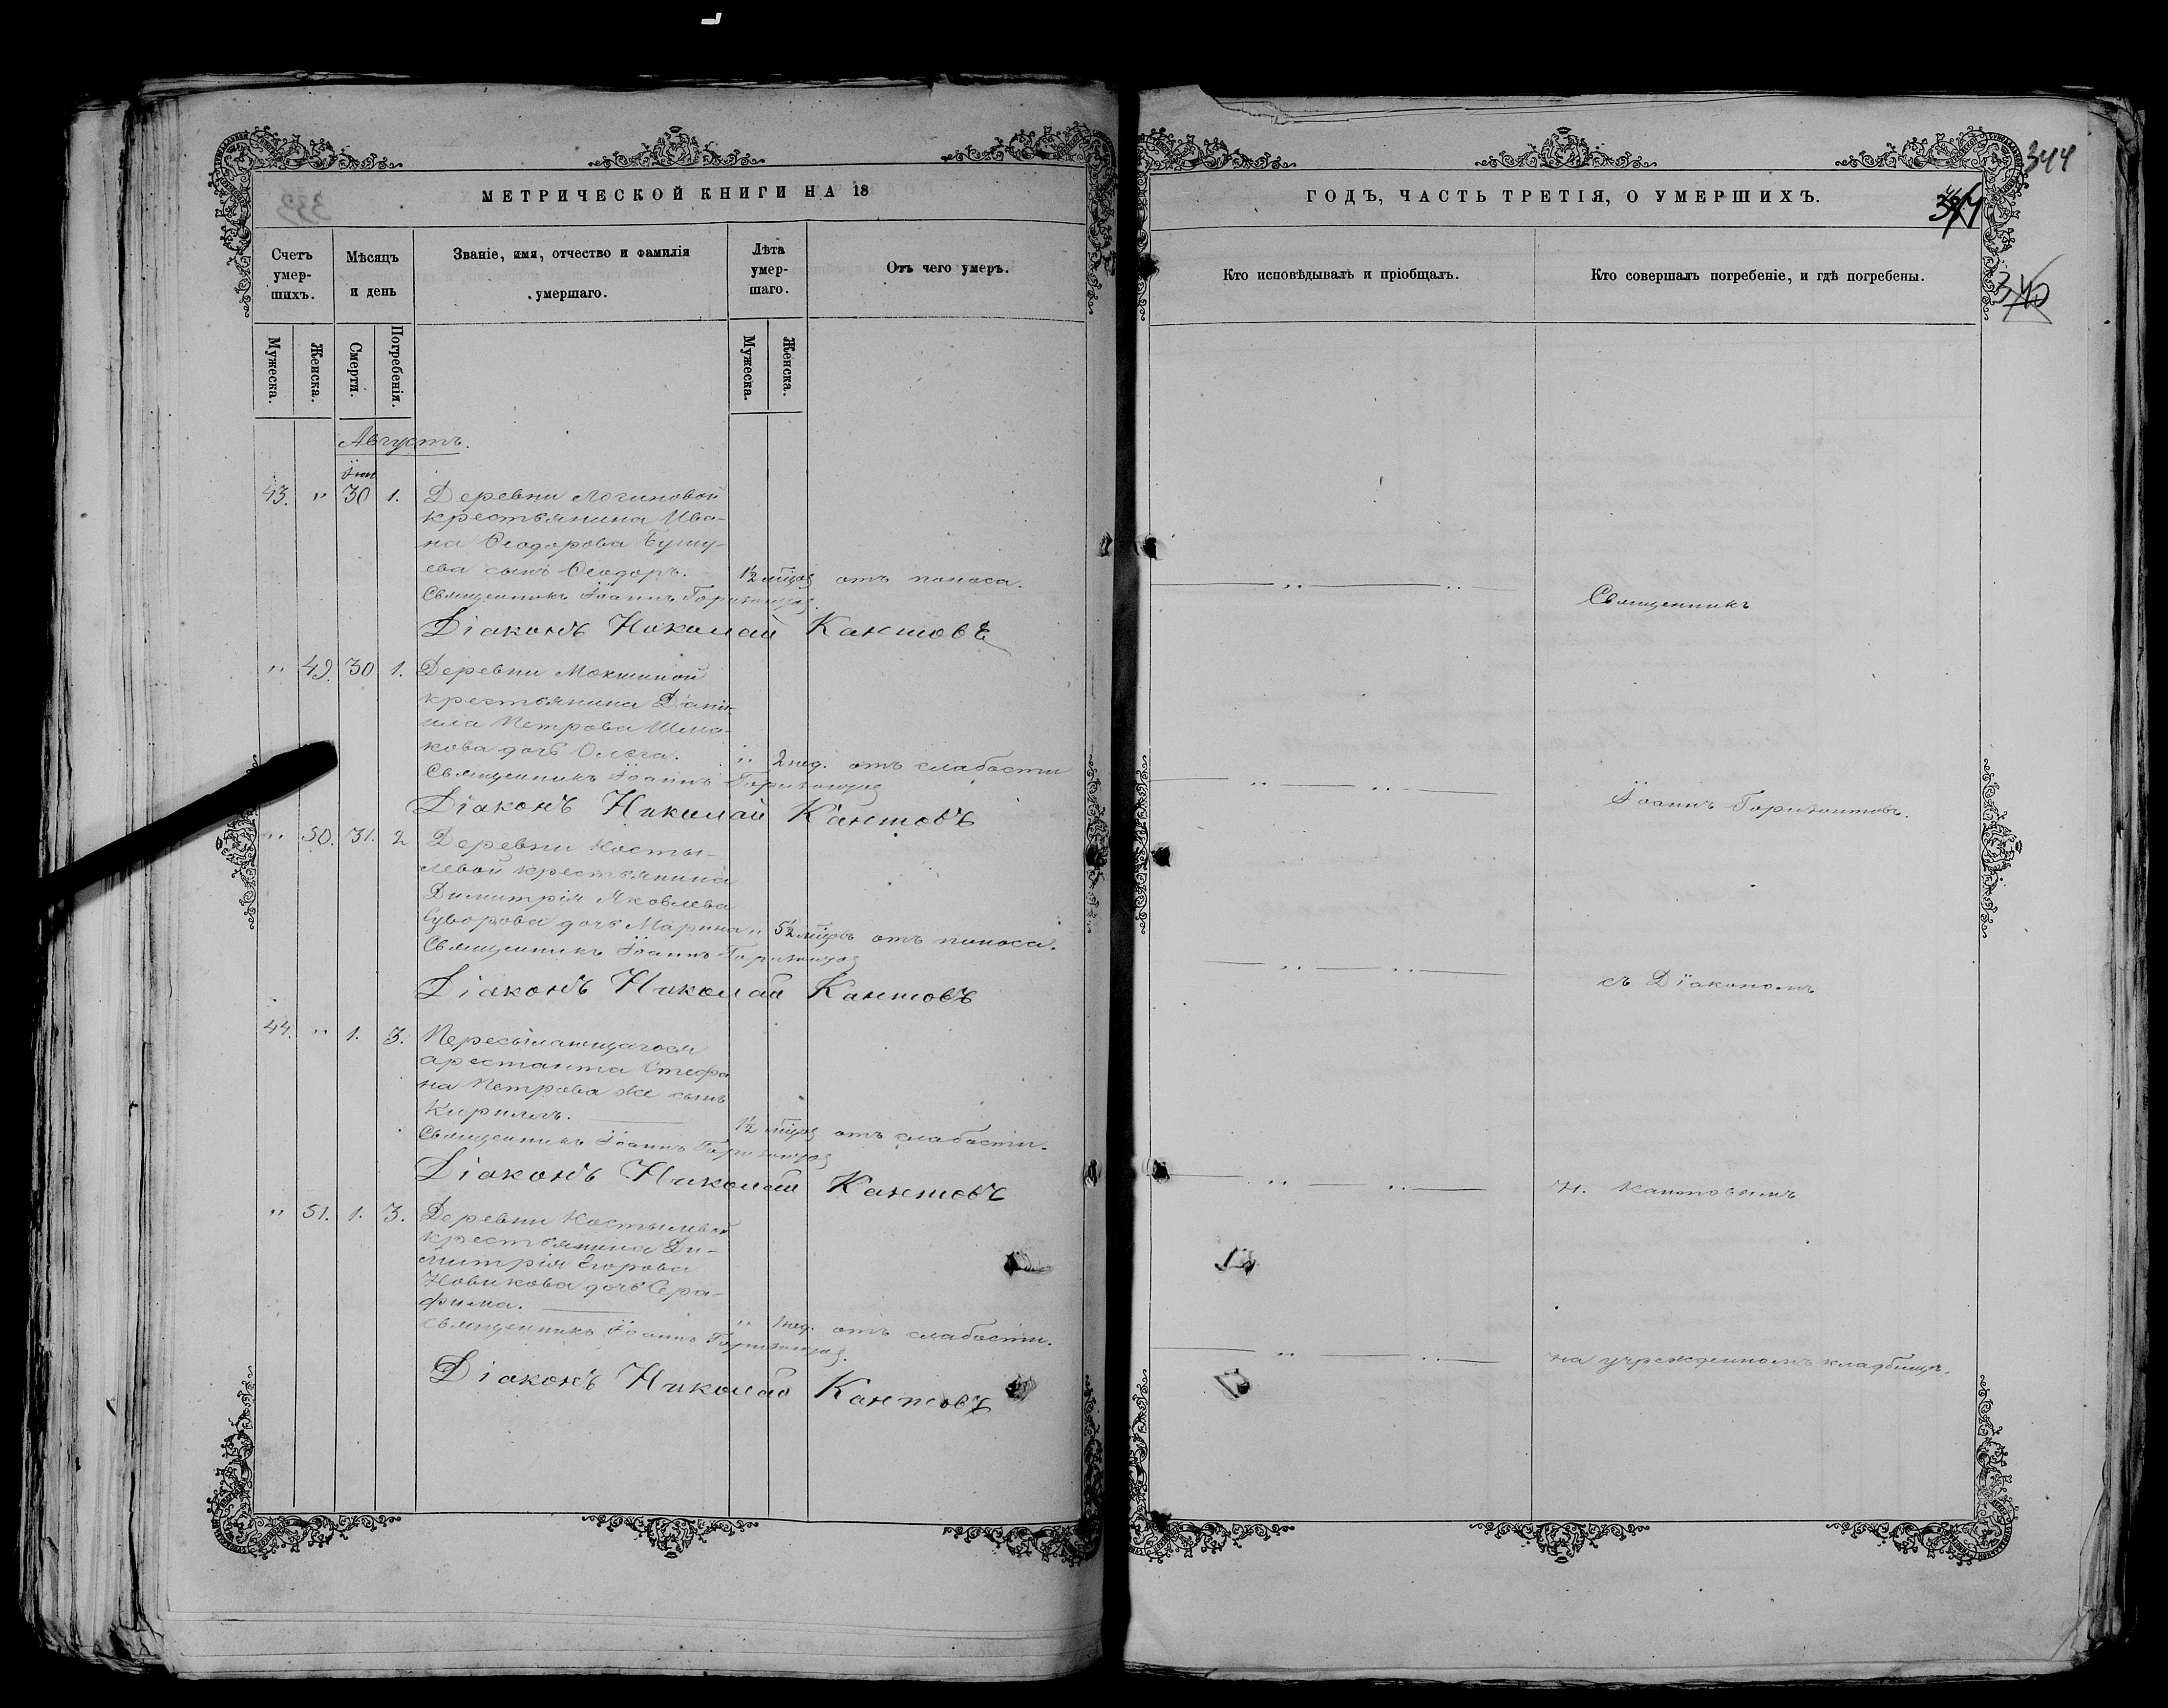 МЕТРИЧЕСКОЙ КНИГИ НА 18
Счетъ умер-шихъ.
Мѣсяцъ и день
Званіе, имя, отчество и фамилія умершаго.
Лѣта умер-шаго.
Отъ чего умеръ.
Мужеска.
Женска.
Смерти.
Погребенія.
Мужеска.
Женска.
Августъ.
43. " 30 1. Деревни Логиновой
крестьянина Ива-
на Ѳеодорова Бушу-
ева сынъ Ѳеодоръ. 1½ отъ поноса.
Священникъ Іоаннъ
Діаконъ Николай Кантовъ
" 49. 30 1. Деревни Мокшиной
крестьянина Дані-
ила Петрова Шма-
кова дочь Ольга. " 2 нед. отъ слабости
Священникъ Іоаннъ
Діаконъ Николай Кантовъ
" 50. 31. 2 Деревни Косты-
левой крестьянина
Димитрія Яковлева
Суворова дочь Марина " 5½ отъ поноса.
Священникъ Іоаннъ
Діаконъ Николай Кантовъ
44. " 1. 3. Пересылающагося
арестанта Стефа
на Петрова же сынъ
Кириллъ. 1½ отъ слабости.
Священникъ Іоаннъ
Діаконъ Николай Кантовъ
" 51. 1. 3. Деревни Костылевой
крестьянина Ди-
митрія Егорова
Новикова дочь Сера-
фима. " 1 нед. отъ слабости.
Священникъ Іоаннъ
Діаконъ Николай Кантовъ
344
ГОДЪ, ЧАСТЬ ТРЕТІЯ, О УМЕРШИХЪ.
Кто исповѣдывалъ и пріобщалъ.
Кто совершалъ погребеніе, и гдѣ погребены.
Священникъ
Іоаннъ Горизонтовъ.
съ Діакономъ
Н. Кантовымъ
на учрежденномъ кладбищѣ.